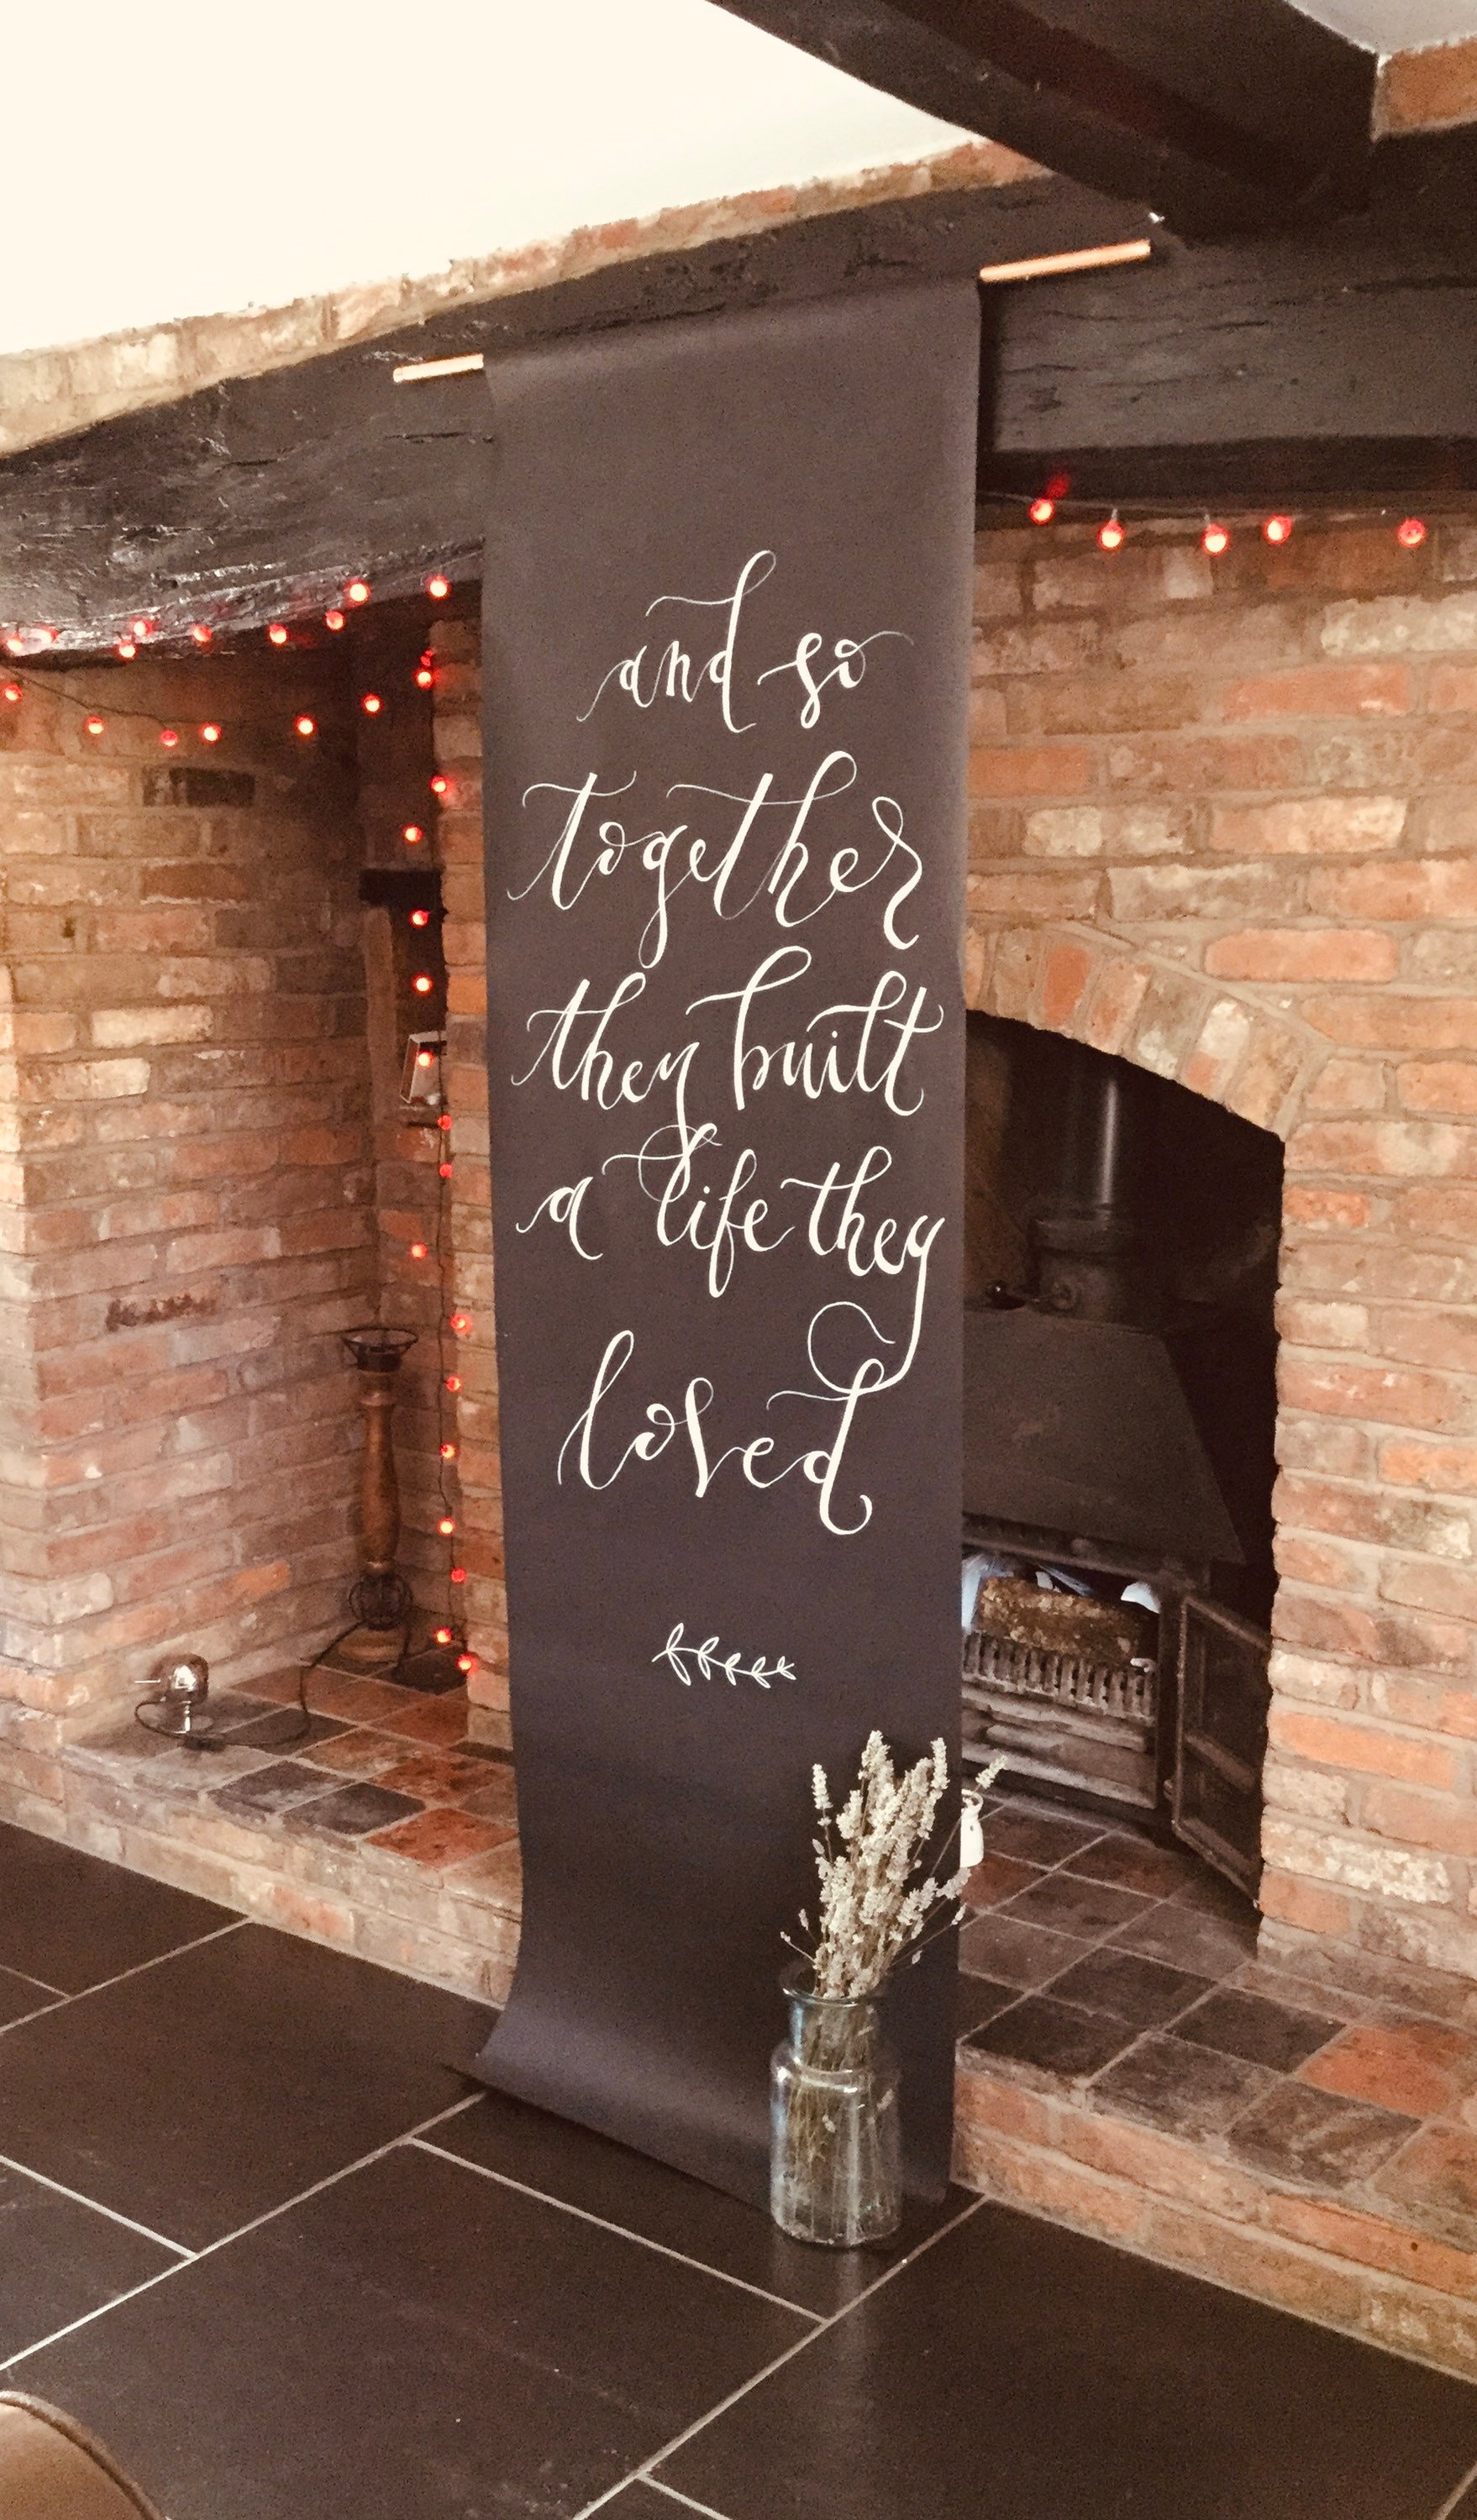 and so
together
they built
a life they
loved